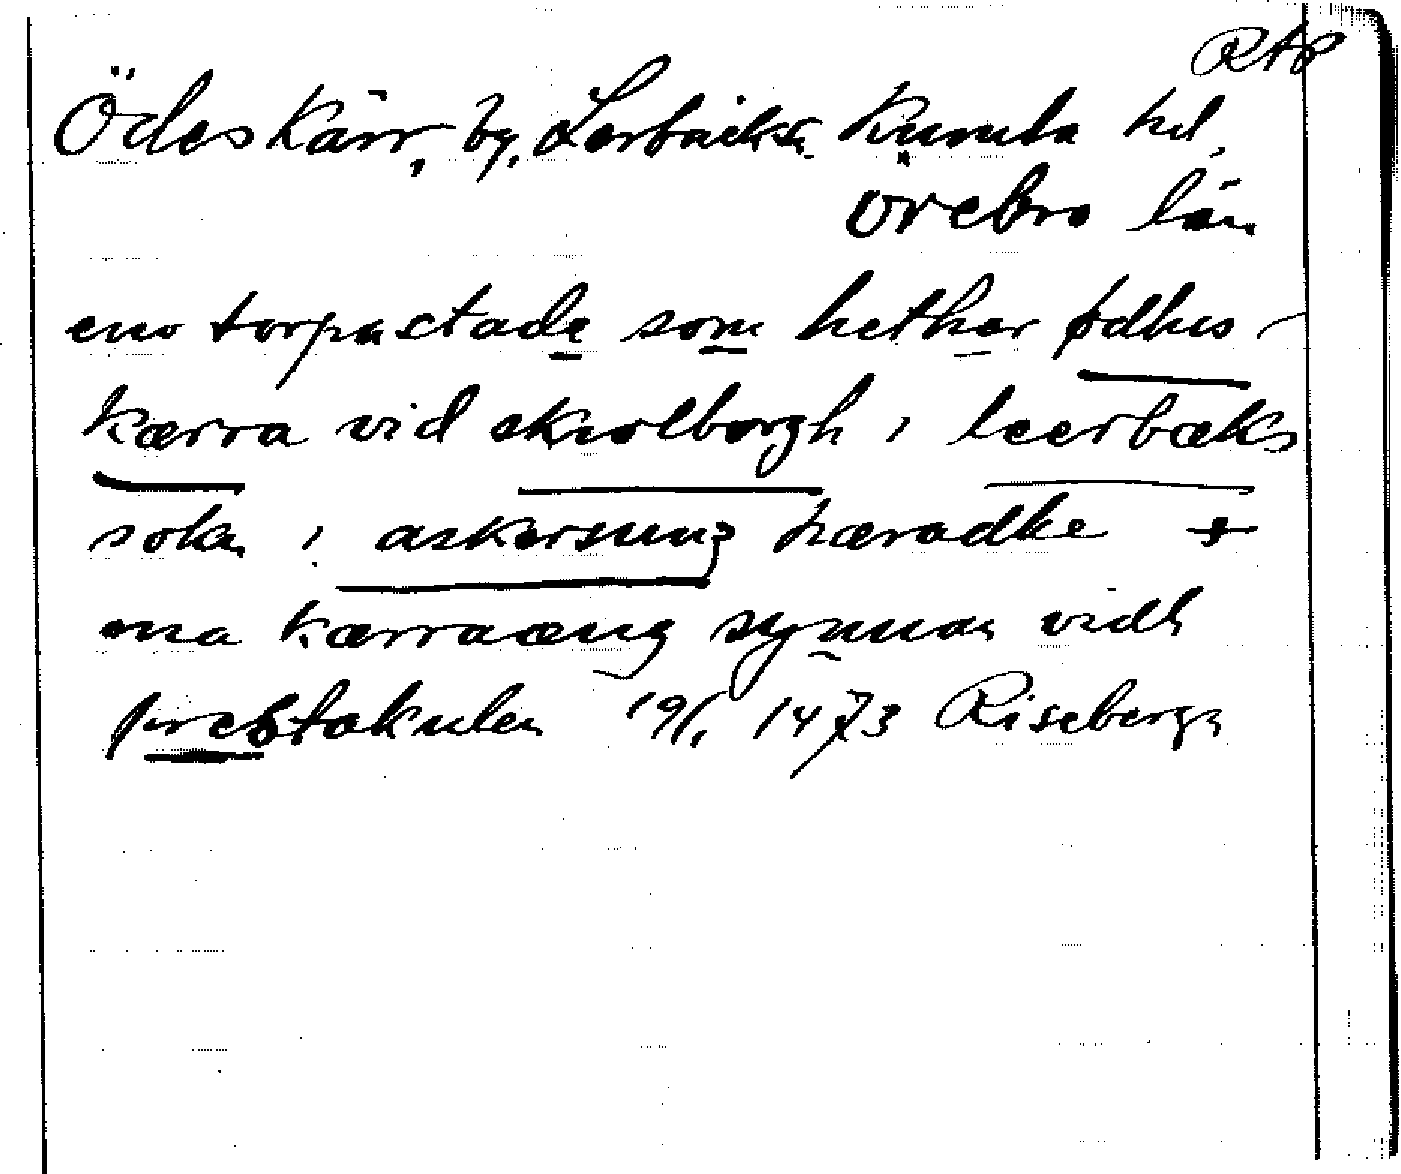 RAP
Ödeskärr, by, Lerbäcks sn Kumla hd,
Örebro län
eno torpastade som hether ødhes-
kærra vid skyllborgh i leerbæks
sokn i askersung hæradhe +
ona kærraæng synnan vidh
prestakulen 19/1 1473 Riseberga